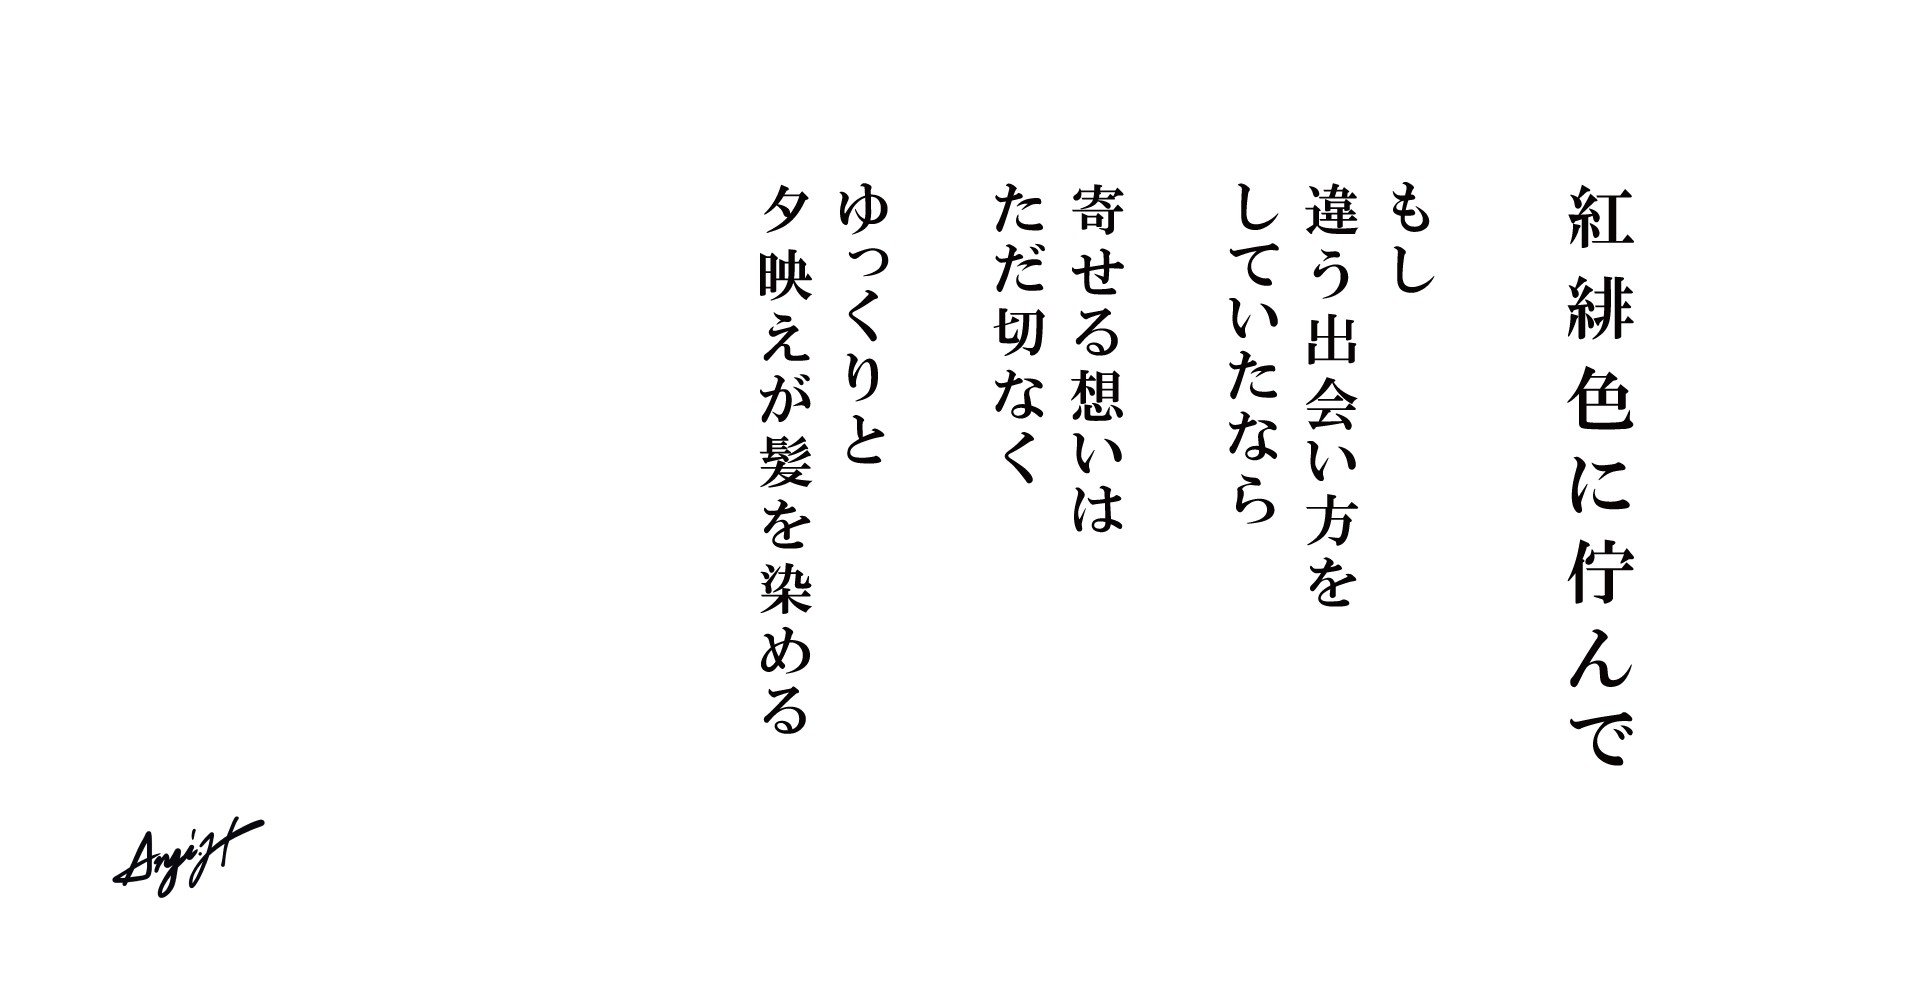 紅緋色に佇んで
もし
違う出会い方を
していたなら
寄せる想いは
ただ切なく
ゆっくりと
夕映えが髪を染める
Angi.H